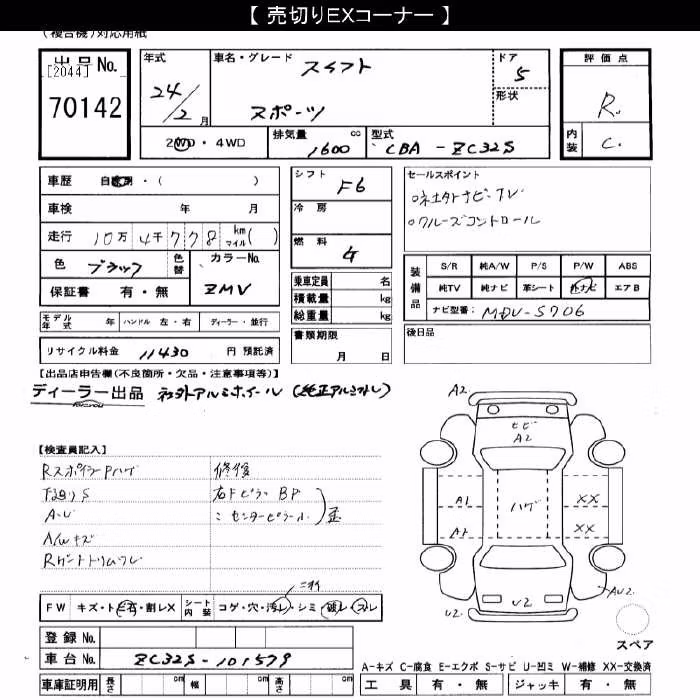 【 売切りEXコーナー 】
(複合機)対応用紙
出品No.
[2044]
70142
年式
24/2月
車名・グレード
スイフト
スポーツ
ドア
5
形状
評価点
R.
内装
C.
2WD・4WD
排気量 1600 cc
型式 CBA - ZC32S
車歴 自家用・( )
車検 年 月
走行 10万4千778 km マイル( )
色 ブラック 色替
カラーNo. ZMV
保証書 有・無
モデル年式 年 ハンドル 左・右 ディーラー・並行
リサイクル料金 11430 円 預託済
シフト F6
冷房
燃料
乗車定員 名
積載量 kg
総重量 kg
書類期限
月 日
セールスポイント
○社外ナビTV
○クルーズコントロール
装備品
S/R 純A/W P/S P/W ABS
純TV 純ナビ 革シート 外ナビ エアB
ナビ型番: MDV-S706
後日品
【出品店申告欄(不良箇所・欠品・注意事項等)】
ディーラー出品 社外アルミホイール(純正アルミ無し)
【検査員記入】
Rスポイラー Pハゲ
下廻りS
A-U
A/Wキズ
Rゲートトリムワレ
修復
右FピラーBP
〃センターピラー
歪
A2
ヒビ
A2
A1
A1
ハゲ
XX
XX
U2
U2
AU2
スペア
ニオイ
FW キズ・トビ石・割レX シート内装 コゲ・穴・汚レ・シミ 破レ・スレ
登録No.
車台No. ZC32S-101579
車庫証明用 長さ cm 幅 cm 高さ cm
A-キズ C-腐食 E-エクボ S-サビ U-凹ミ W-補修 XX-交換済
工具 有・無 ジャッキ 有・無